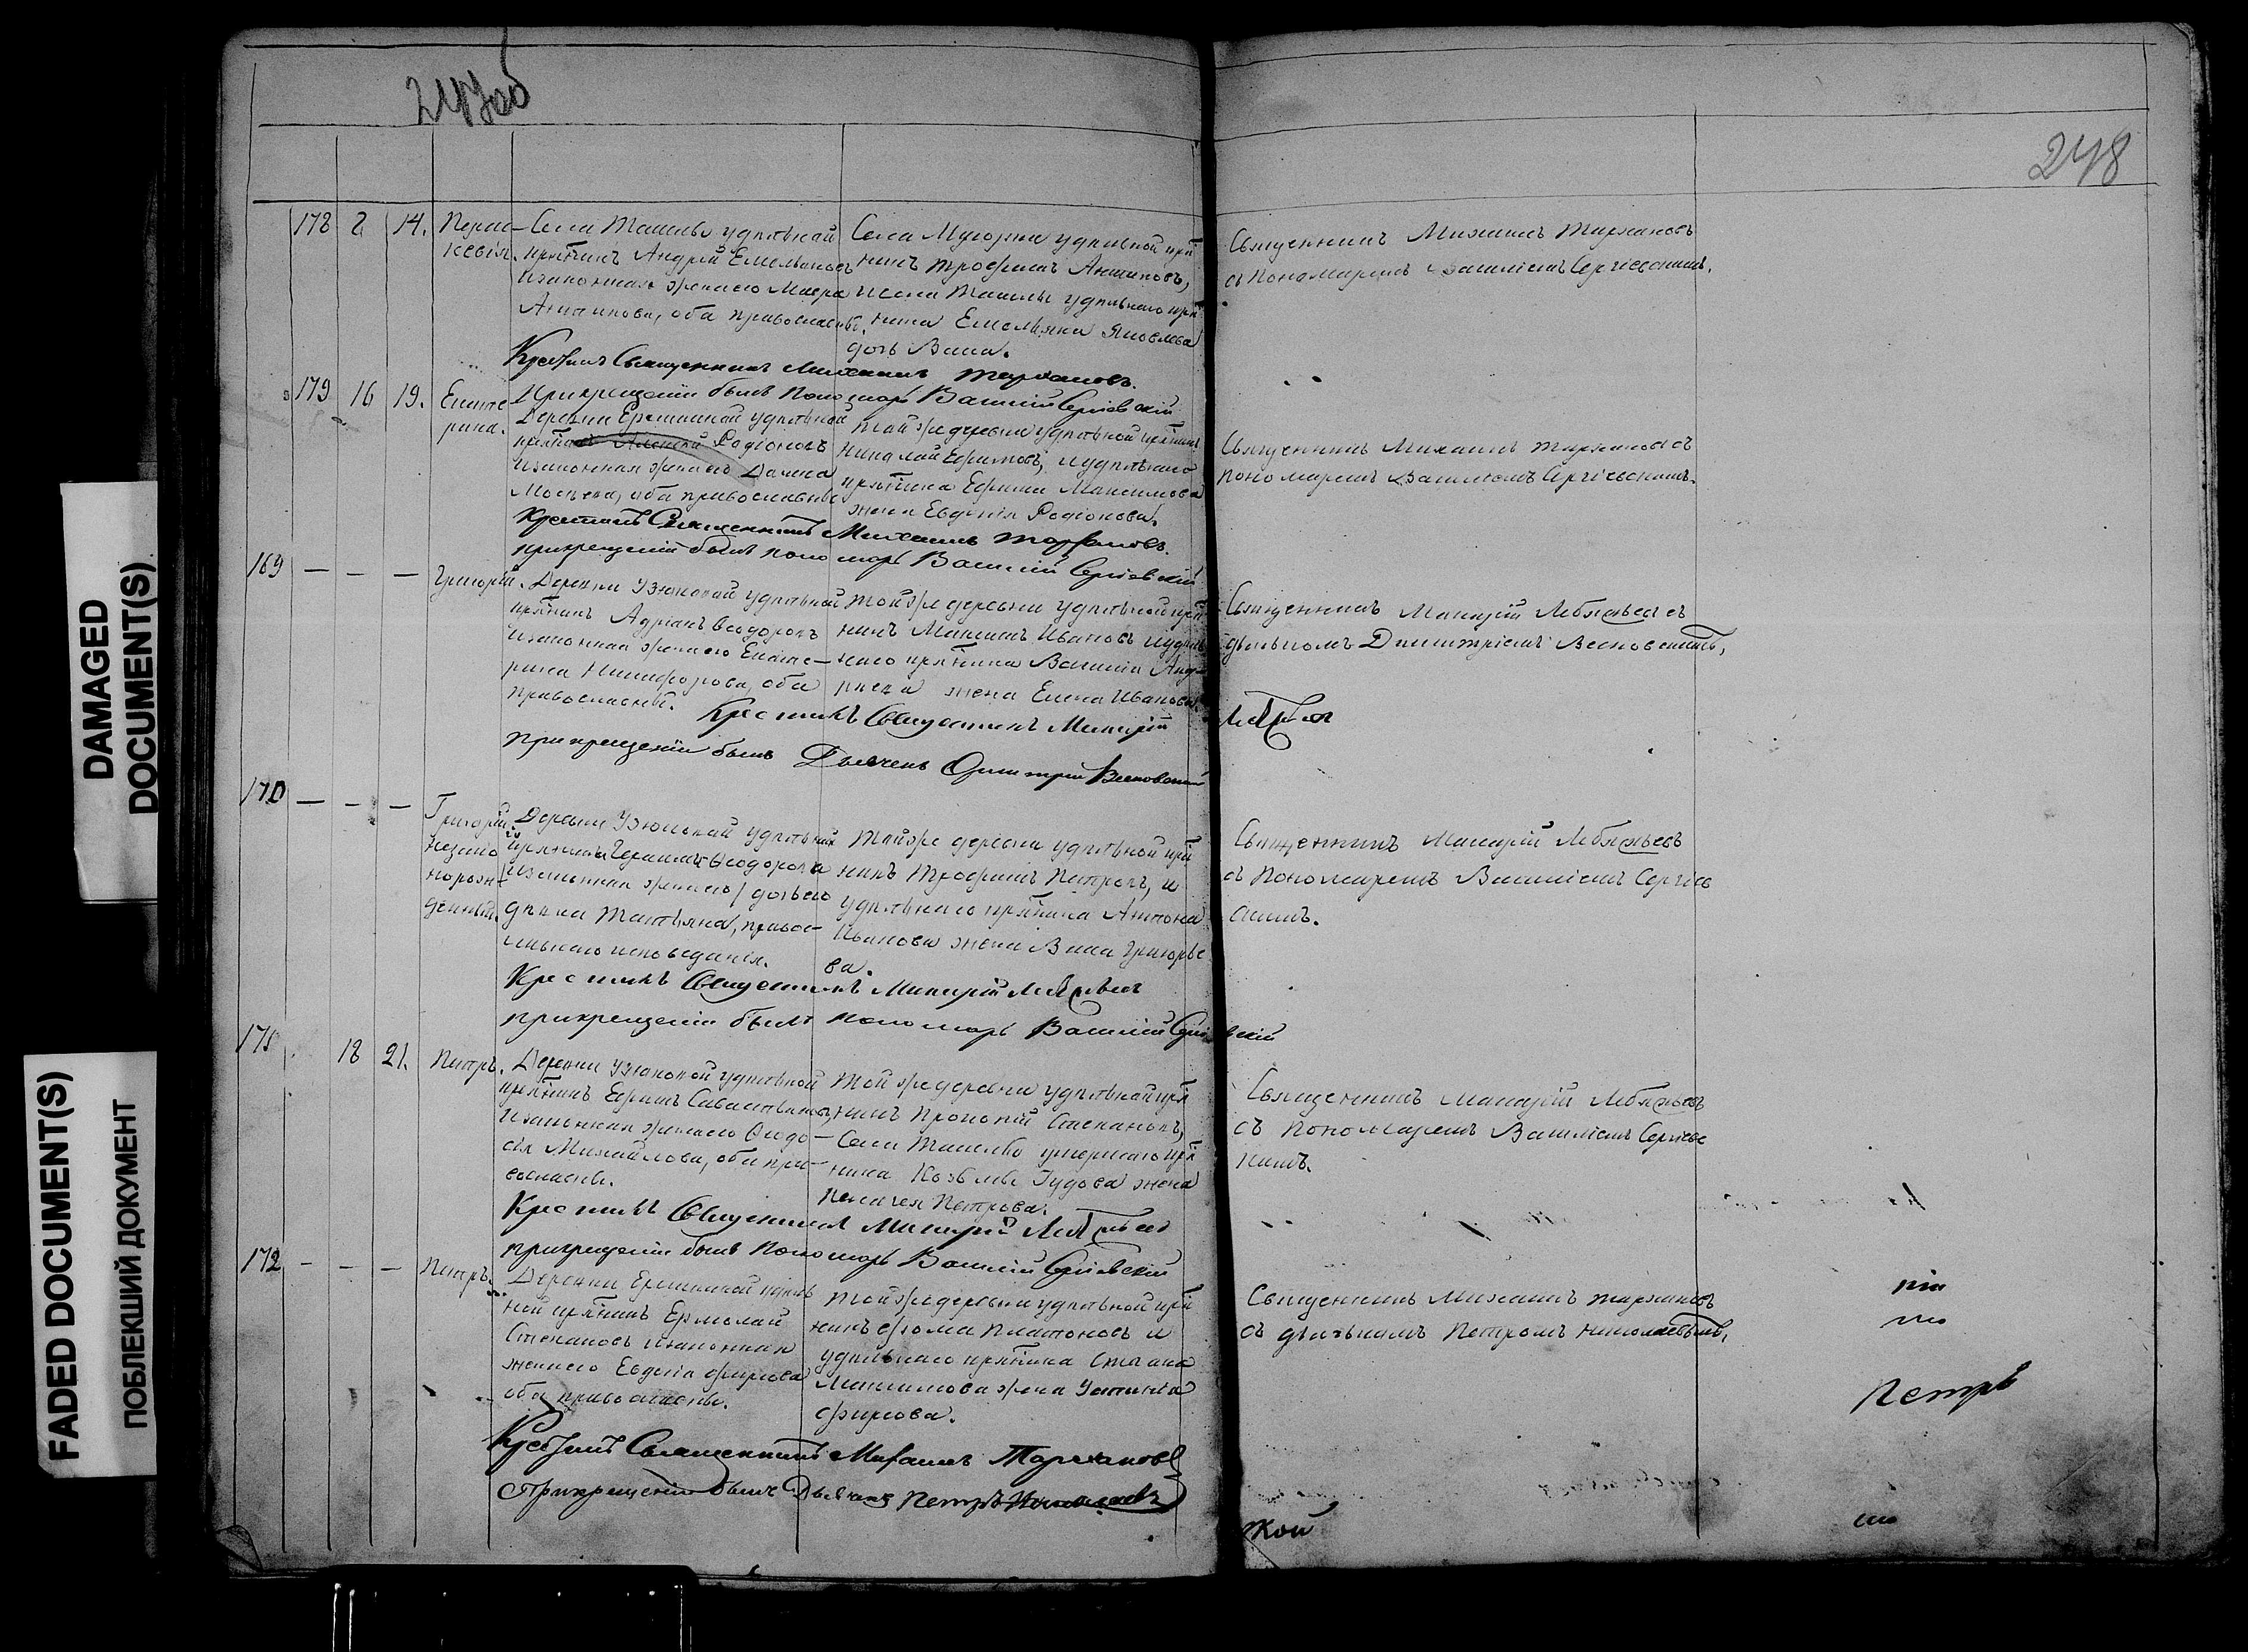 DAMAGED
DOCUMENT(S)
FADED DOCUMENT(S)
ПОБЛЕКШИЙ ДОКУМЕНТ
247об
248
178 2 14. Парас-
кевія.
Села Ташелы удѣльной
крѣнинъ Андрей Емельяновъ
и законная жена его
Антипова, оба православн.
Села Мусорки удѣльной крѣ
нинъ Трофимъ Антиповъ,
и села Ташелы удѣльнаго крѣ
нина Емельяна Яковлева
дочь Васса.
Священникъ Михаилъ Тарханковъ
съ Пономаремъ Василіемъ Сергіевскимъ.
Крестилъ Священникъ Михаилъ Тархановъ.
При крещеніи былъ пономарь Василій Сергіевскій
179 16 19. Екате
рина.
Деревни Еремкиной удѣльной
крѣнинъ Алексѣй Родіоновъ
и законная жена его Дарья
Мосѣева, оба православные
той же деревни удѣльной крѣнинъ
Николай Ефимовъ, и удѣльнаго
крѣнина Ефима Максимова
жена Евдокія Родіонова.
Священникъ Михаилъ Тархановъ съ
пономаремъ Василіемъ Сергіевскимъ.
Крестилъ Священникъ Михаилъ Тархановъ.
при крещеніи былъ пономарь Василій Сергіевскій
169 — — — Григорій.
Деревни Узюковой удѣльной
крѣнинъ Адріанъ Ѳеодоровъ
и законная жена его Екате-
рина Никифорова, оба
православны.
той же деревни удѣльной крѣ
нинъ Максимъ Ивановъ и удѣль
наго крѣнина Василія Анд
жена Елена Иванова.
Священникъ Макарій Лебяжьевъ съ
дьячкомъ Димитріемъ Весновскимъ,
Крестилъ Священникъ Макарій
при крещеніи былъ Дьячекъ Димитрій Весновскій
170 — — — Григорій
незако
норож-
денный.
Деревни Узюковой удѣльнаго
крѣнина Герасима Ѳеодорова
и законной жены его дочь его
дѣвка Татьяна, право-
славнаго исповѣданія.
Той же деревни удѣльной крѣ
нинъ Трофимъ Петровъ, и
удѣльнаго крѣнина Антона
Иванова жена Васса Григорье
ва.
Священникъ Макарій Лебяжьевъ
съ Пономаремъ Василіемъ Сергіев
скимъ.
Крестилъ Священникъ Макарій Лебяжьевъ
при крещеніи былъ пономарь Василій Сергіевскій
171 18 21. Петръ.
Деревни Узюковой удѣльной
крѣнинъ Ефимъ Савастьяновъ,
и законная жена его Ѳеодо-
сія Михайлова, оба пра-
вославны.
Той же деревни удѣльной крѣ
нинъ Прокопій Степановъ,
Села Ташелы умершаго крѣ
нина Козьмы Гудова жена
Пелагея Петрова.
Священникъ Макарій Лебяжьевъ
съ Пономаремъ Василіемъ Сергіевс
кимъ.
Крестилъ Священникъ Макарій Лебяжьевъ
при крещеніи былъ пономарь Василій Сергіевскій
172 — — — Петръ.
Деревни Еремкиной удѣль
ной крѣнинъ Ермолай
Степановъ и законная
жена его Евдокія Фирсова
оба православны.
Той же деревни удѣльной крѣ
нинъ Фома Платоновъ и
удѣльнаго крѣнина
Максимова жена Устинья
Фирсова.
Священникъ Михаилъ Тархановъ
съ дьячкомъ Петромъ Николаевымъ,
Крестилъ Священникъ Михаилъ Тархановъ
При крещеніи былъ Дьячекъ Петръ Николаевъ
Петръ